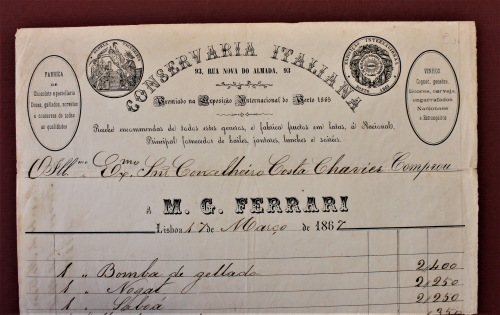 CONSERVARIA ITALIANA
93, RUA NOVA DO ALMADA, 93
Premiado na Exposição Internacional do Porto 1865
FABRICA
DE
Chocolate e pastellaria
Doces, gellados, sorvetes
e conservas de todas
as qualidades
VINHOS
Cognac, genebra,
licores, cerveja
engarrafados
Nacionaes
e Estrangeiros
Recebe encommendas de todos estes generos, e fabrica fructos em latas, é Nacional,
Principal fornecedor de bailes, jantares, lunches e soirées.
O Illmo Exmo Snr Conselheiro Costa Chavies Comprou
A M. G. FERRARI
Lisboa 17 de Março de 1867
1 " Bomba de gellado 2,400
1 " Nogat 2,250
1 " Saboá 2,250
350